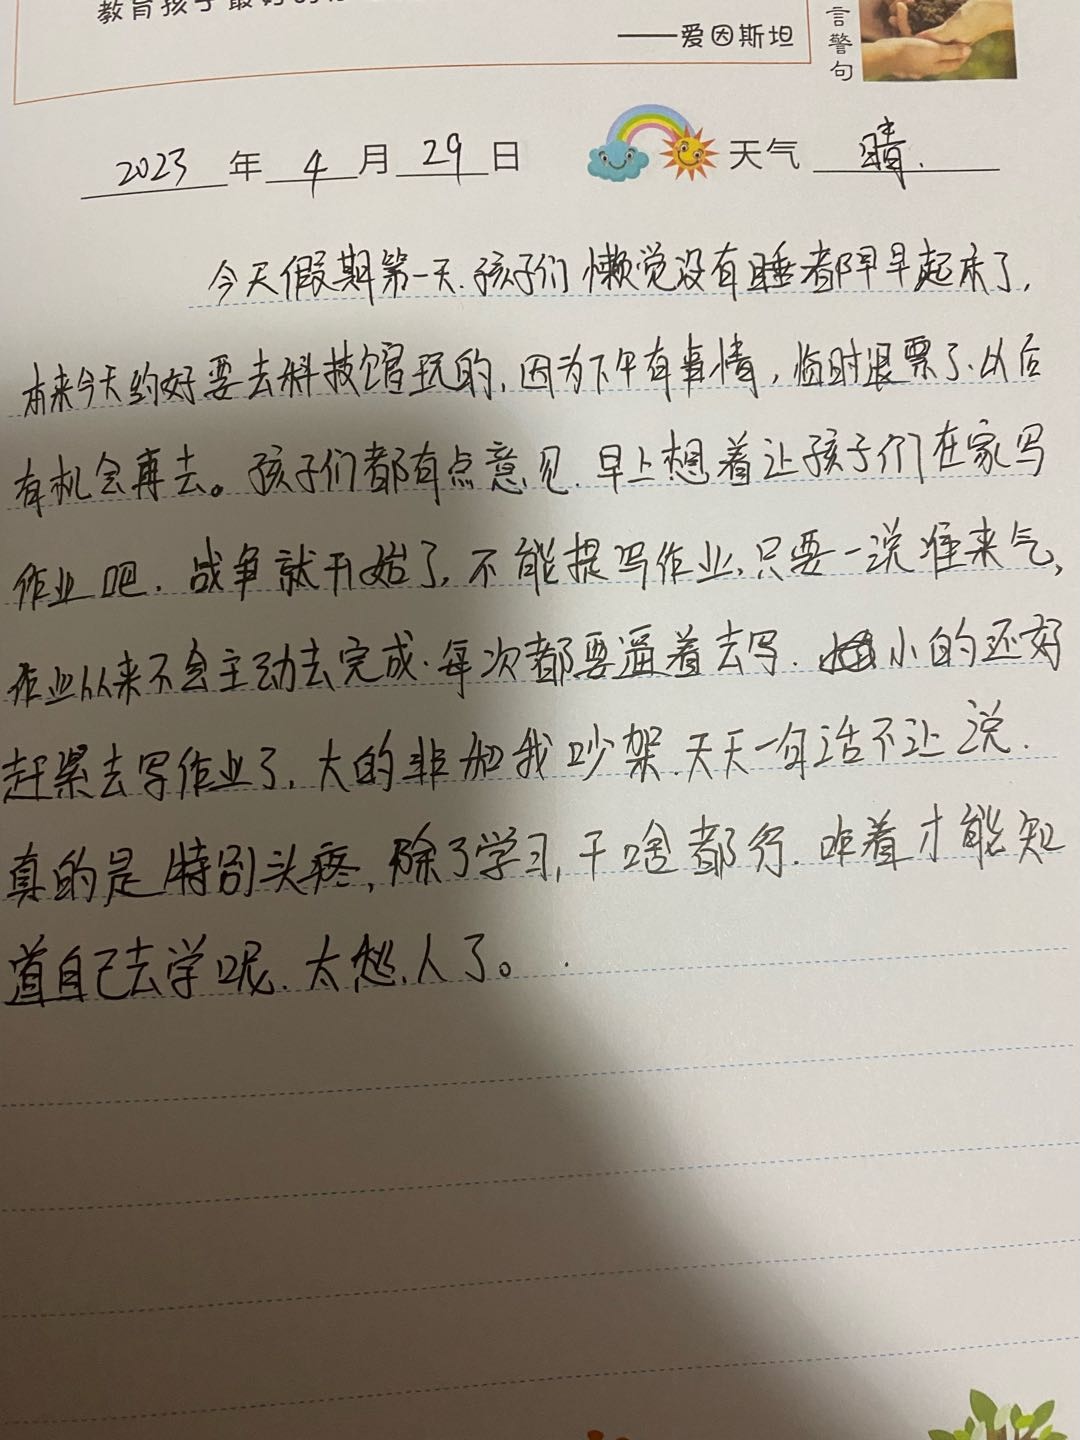 教育孩子最好的
——爱因斯坦
言警句
2023年4月29日 天气 晴.
今天假期第一天.孩子们懒觉没有睡都早早起床了,
本来今天约好要去科技馆玩的,因为下午有事情,临时退票了.以后
有机会再去。孩子们都有点意见.早上想着让孩子们在家写
作业吧.战争就开始了,不能提写作业,只要一说准来气,
作业从来不会主动去完成.每次都要逼着去写.小的还好
赶紧去写作业了,大的非和我吵架.天天一句话不让说.
真的是特别头疼,除了学习,干啥都行.咋着才能知
道自己去学呢.太愁人了。